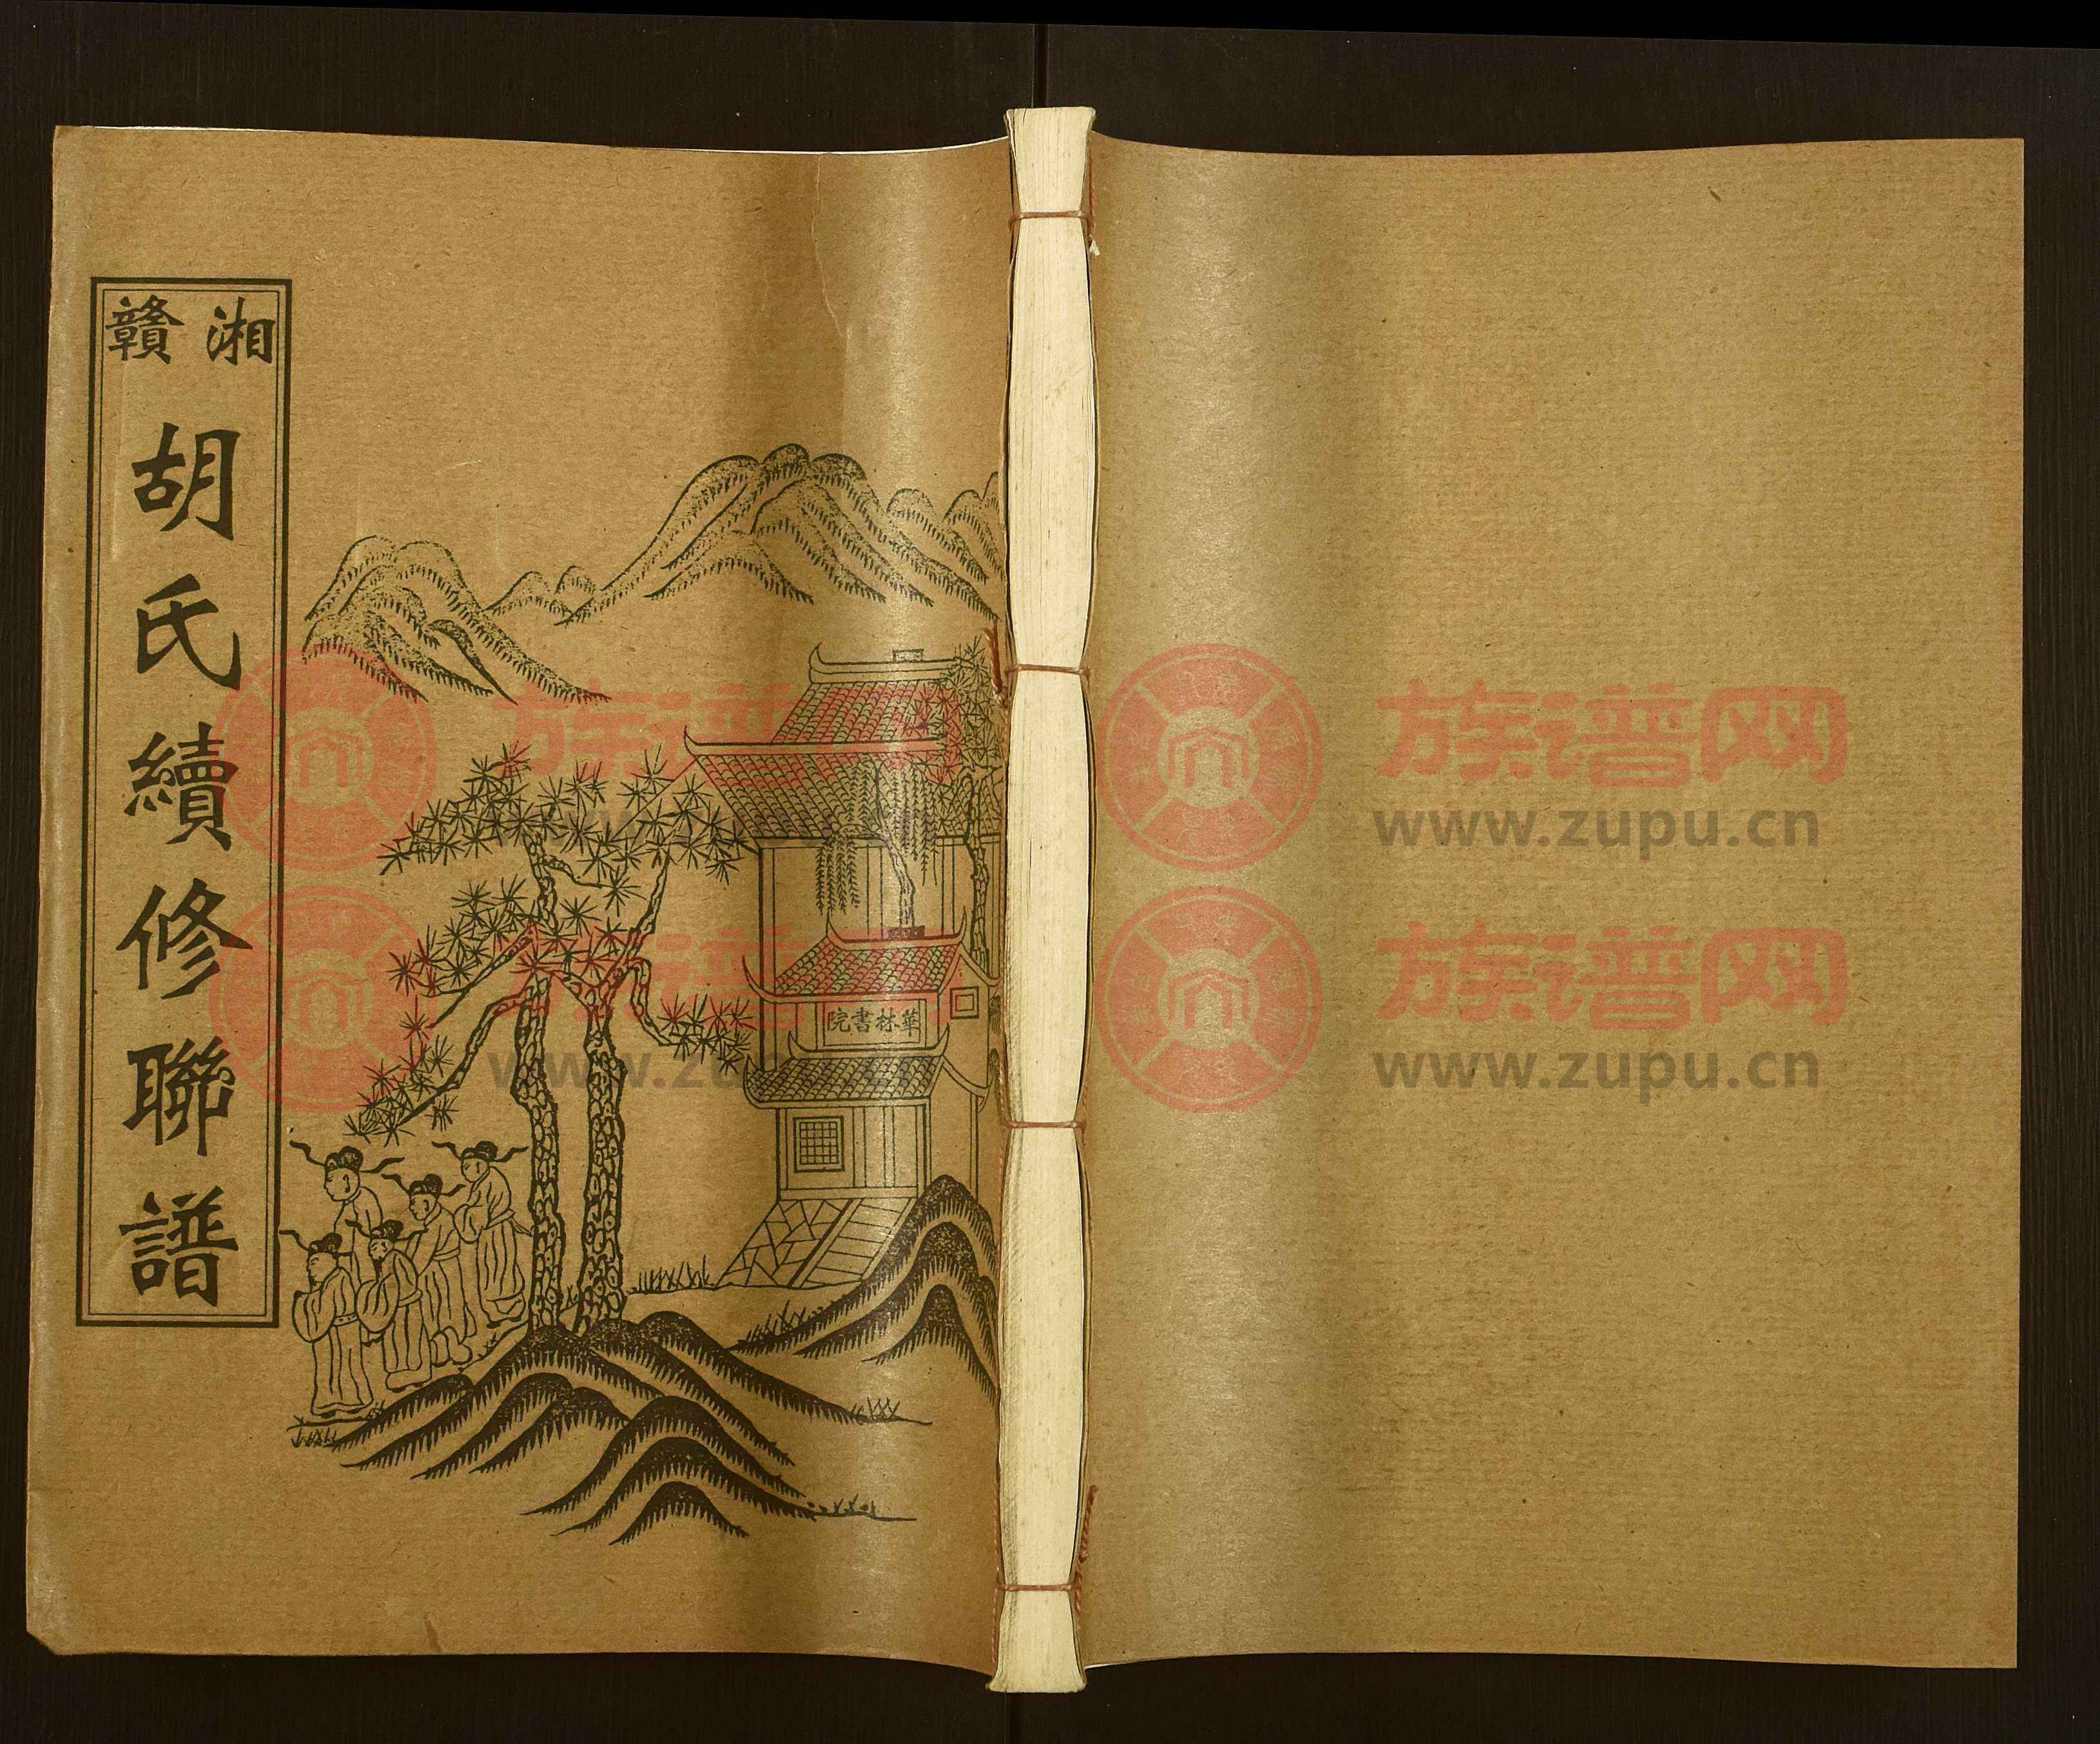 湘贛
胡氏續修聯譜
華林書院
族谱网
www.zupu.cn
族谱网
www.zupu.cn
族谱网
www.zupu.cn
族谱网
www.zupu.cn